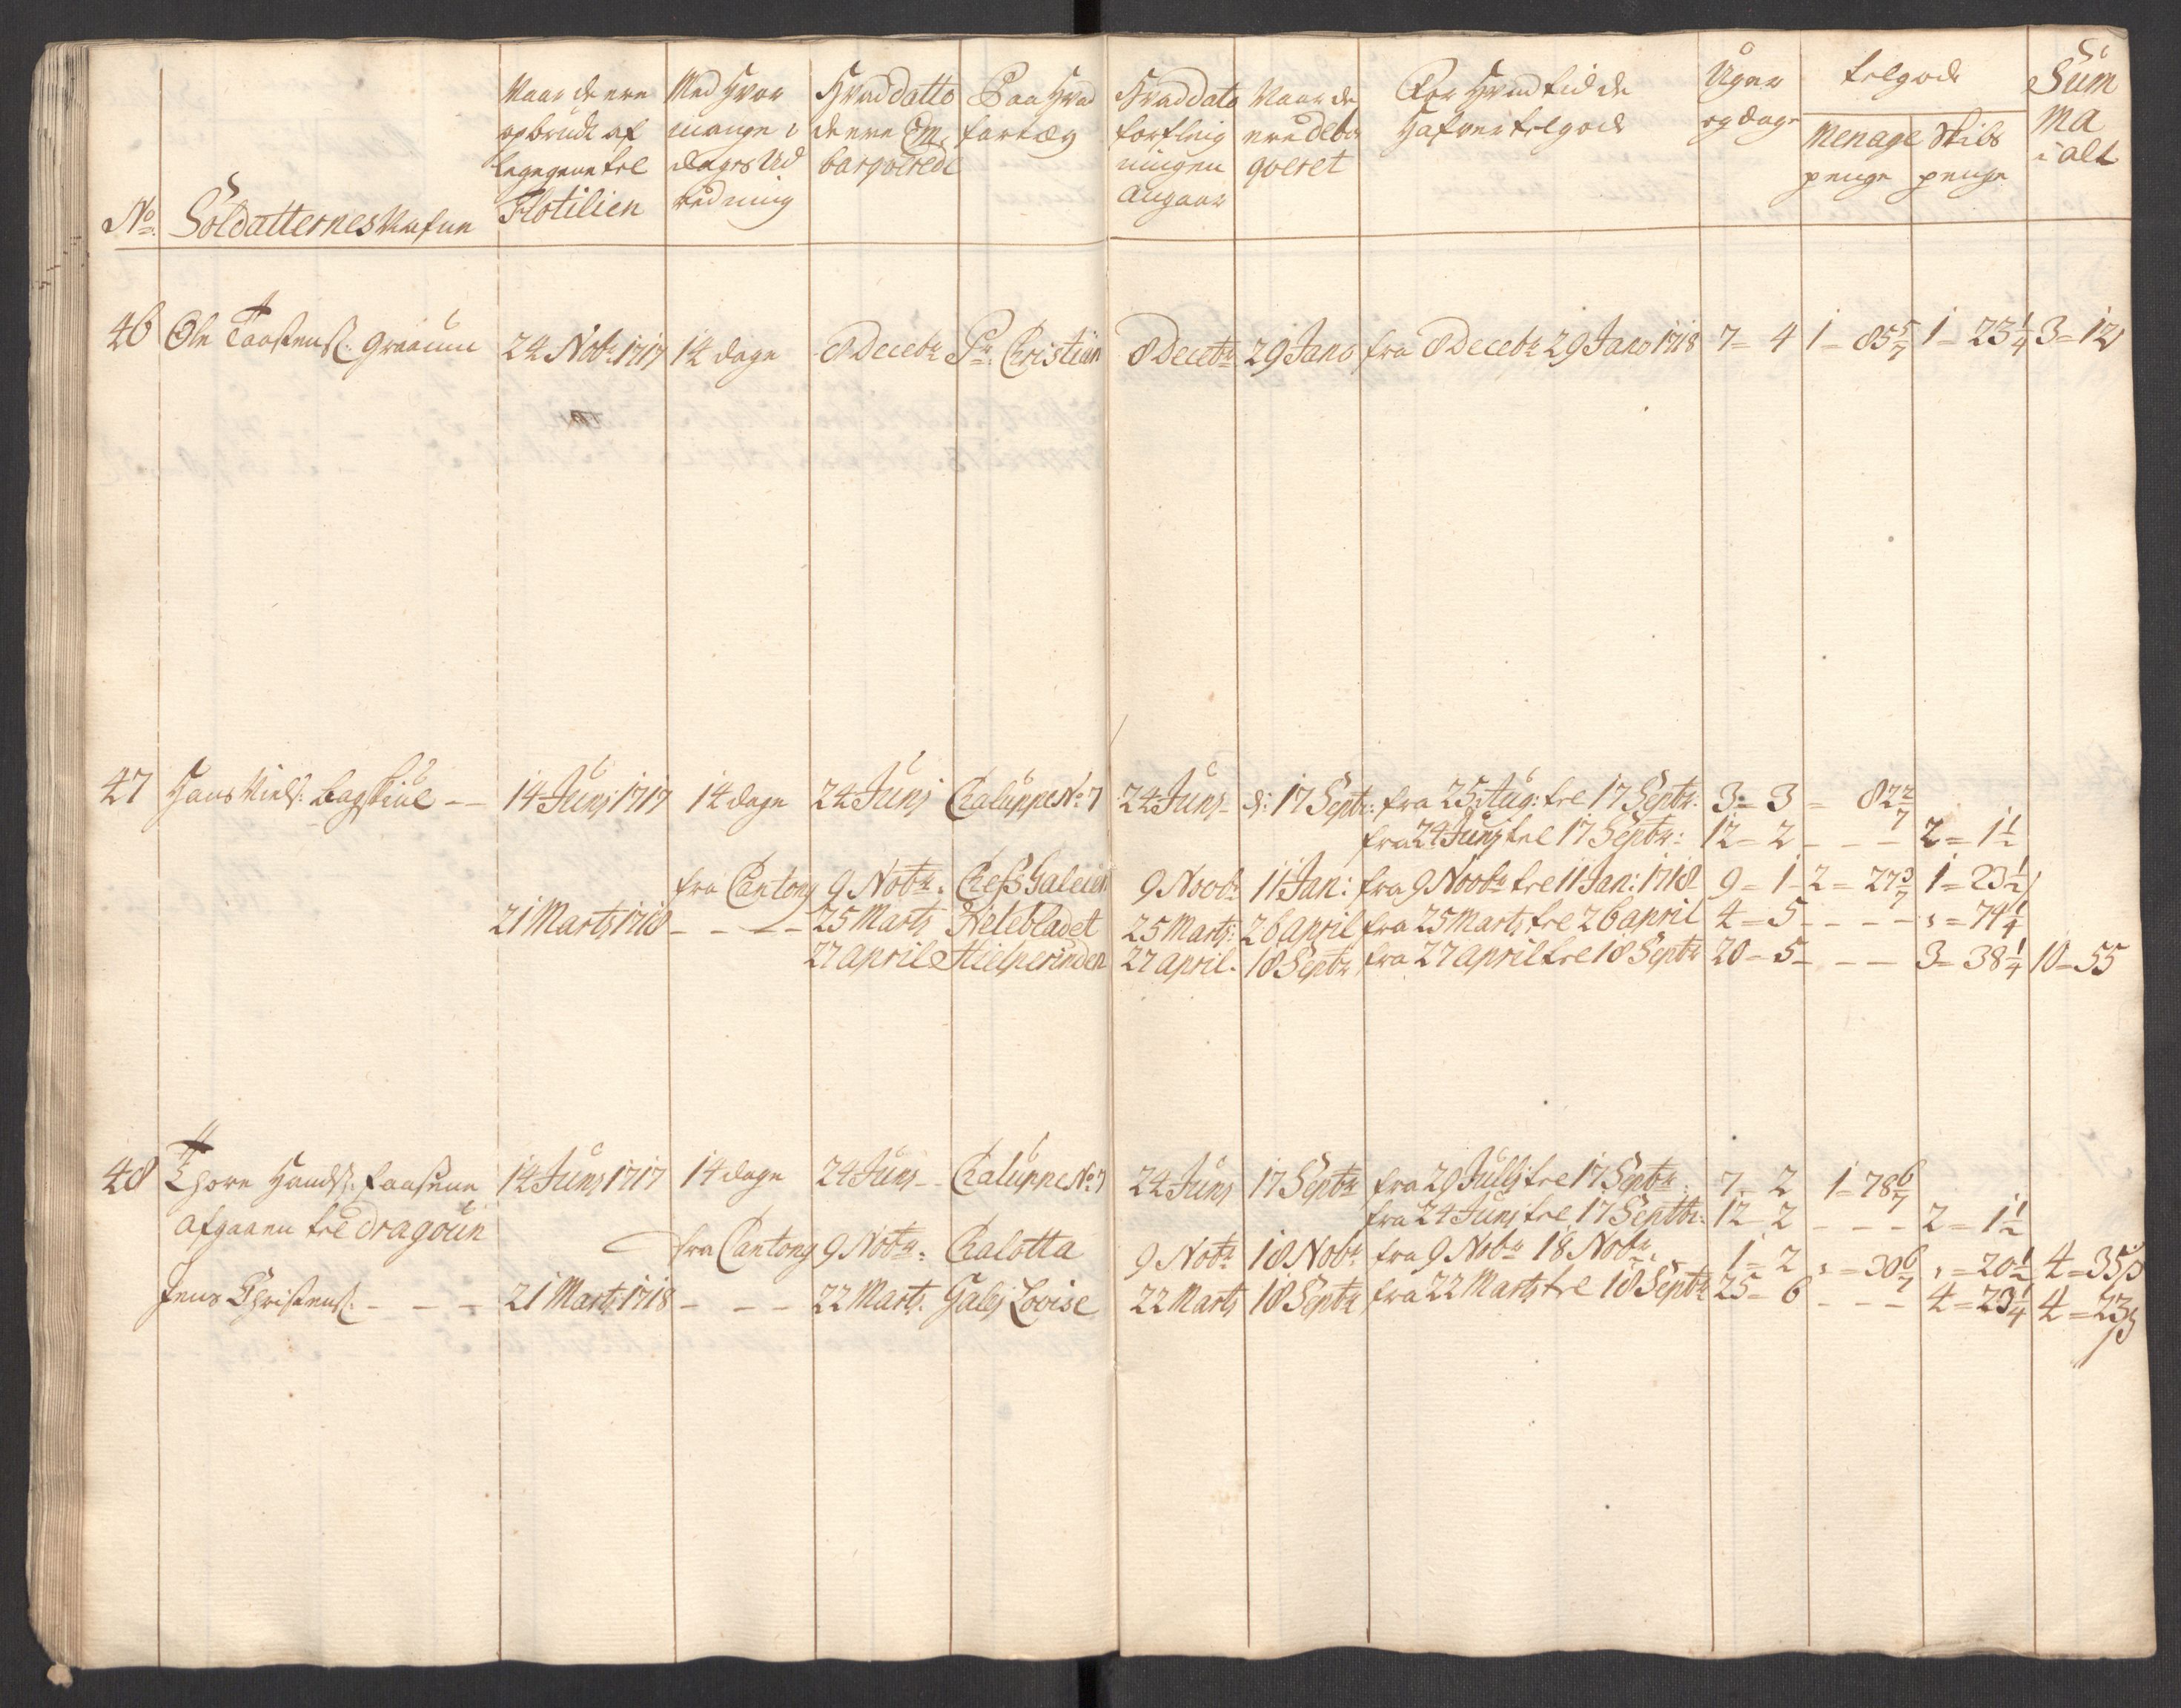 No. Soldatternes Nafne
Naar de ere opbrudt af legegene til Flotilien
Med Hvor mange dages Udredning
Hvad datto de ere Embarqverede
Paa Hvad fartøy
Hvad dato forfleigningen Angaar
Naar de ere debarqveret
For Hvad tid de Hafver tilgode
Uger og dage
tilgode
Menage penge
Skibs penge
Summa i alt
46 Ole Taastens: 24 Nobr: 1717 14 dage 8 Decebr Pr: Christian 8 Decebr 29 Jano fra 8 Decebr 29 Jano 1718 7= 4 1= 85 5/7 1= 23 1/4 3= 12
47 Hans Niels: Bagskiul -- 14 Junj 1717 14 dage 24 Junj Chaluppe No: 7 24 Junj- d: 17 Septr: fra 25 Aug: til 17 Septr: 3= 3 = 82 2/7
fra 24 Junj til 17 Septr: 12= 2 - - - 2= 1 1/2
fra Cantong 9 Nobr: Chefs Galeien 9 Noobr 11 Jan: fra 9 Noobr til 11 Jan: 1718 9= 1- 2= 27 3/7 1= 23 1/4
21 Marts 1718 - - - 25 Marts Helebladet 25 Marts: 26 April fra 25 Marts til 26 April 4= 5 - - - = 74 1/4
27 April Hielperinden 27 April. 18 Septr fra 27 April til 18 Septr 20= 5- - - 3= 38 1/4 10= 55
48 Thore Hands: Faasene 14 Junj 1717 14 dage 24 Junj- Chaluppe No: 7 24 Junj 17 Septr fra 29 Julij til 17 Septr: 7= 2 1= 78 6/7
Afgaaen til Dragoun fra 24 Junj til 17 Septbr: 12= 2 - - - 2= 1 1/2
fra Cantong 9 Nobr: Chalotta 9 Nobr 18 Nobr fra 9 Nobr 18 Nobr: 1= 2 = 30 6/7 = 20 1/2 4= 35 ß
Jens Christens: - - - 21 Marts 1718 - - - 22 Marts: Galej Lovise 22 Marts 18 Septr fra 22 Marts til 18 Septr 25= 6 - - - 4= 23 1/4 4= 23 ß